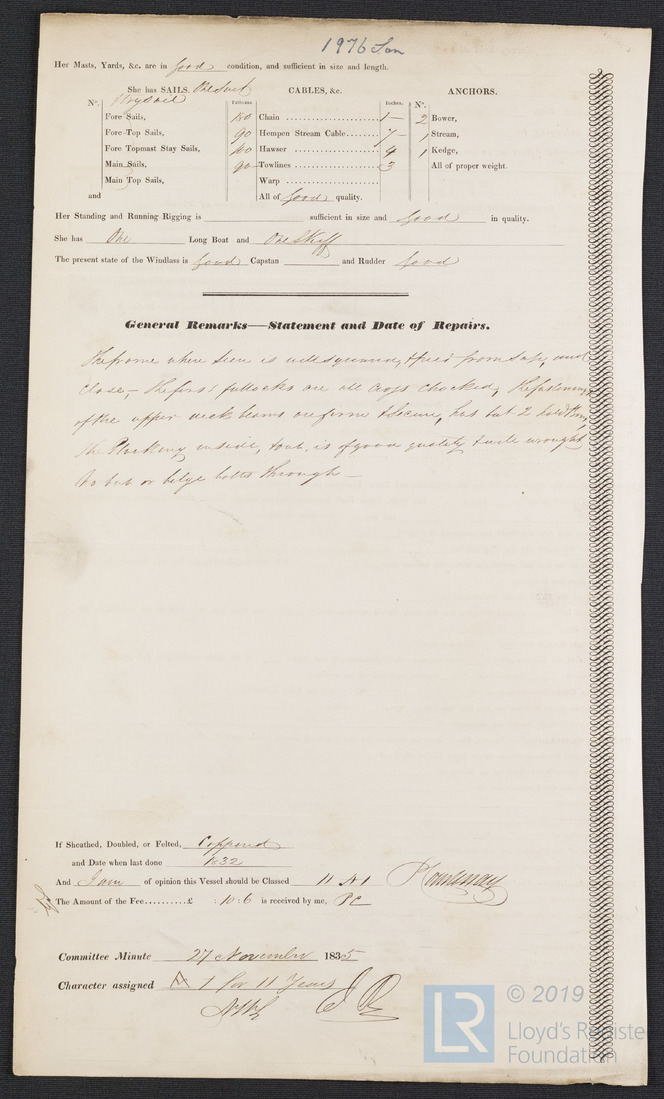 1976 Lon
Her Masts, Yards, &c. are in good condition, and sufficient in size and length.
She has SAILS. One Suit CABLES, &c. ANCHORS.
N°. Fathoms. Inches. N°.
Fore Sails, Chain 1 2 Bower,
Fore Top Sails, 90 Hempen Stream Cable 7 1 Stream,
Fore Topmast Stay Sails, Hawser 4 1 Kedge,
Main Sails, 90 Towlines 3 All of proper weight.
Main Top Sails, Warp
and All of good quality.
Her Standing and Running Rigging is sufficient in size and good in quality.
She has One Long Boat and One Skiff
The present state of the Windlass is Good Capstan and Rudder Good
General Remarks—Statement and Date of Repairs.
The frame where seen is well squared, & free from sap, and
close, — the first futtocks are all crops chocked, The fastenings
of the upper deck beams are firm & secure, has but 2 hold
the Planking inside, is of good quality & well wrought
no but or bilge bolts through —
If Sheathed, Doubled, or Felted, Coppered
and Date when last done 1832
And I am of opinion this Vessel should be Classed 11 A 1
The Amount of the Fee £ : 10 : 6 is received by me,
Committee Minute 27 November 1835
Character assigned A 1 for 11 Years
LR
© 2019
Lloyd's Registe
Foundation